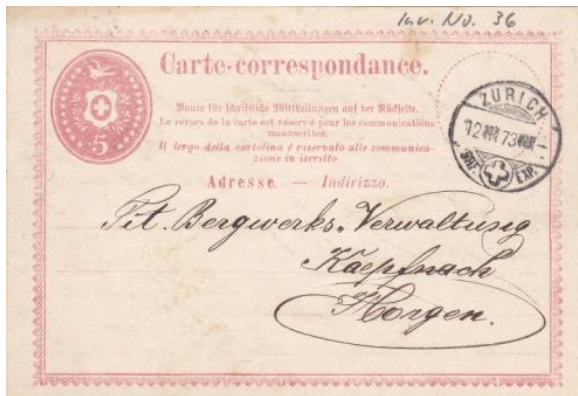 Inv. No. 36
Carte-correspondance.
5
Raum für schriftliche Mittheilungen auf der Rückseite.
Le revers de la carte est réservé pour les communications
manuscrites.
Il tergo della cartolina é riservato alle communica-
zione in iscritto
ZÜRICH
12 IV 73
BRF. EXP.
Adresse. — Indirizzo.
Tit. Bergwerks-Verwaltung
Kaepfnach
Horgen.